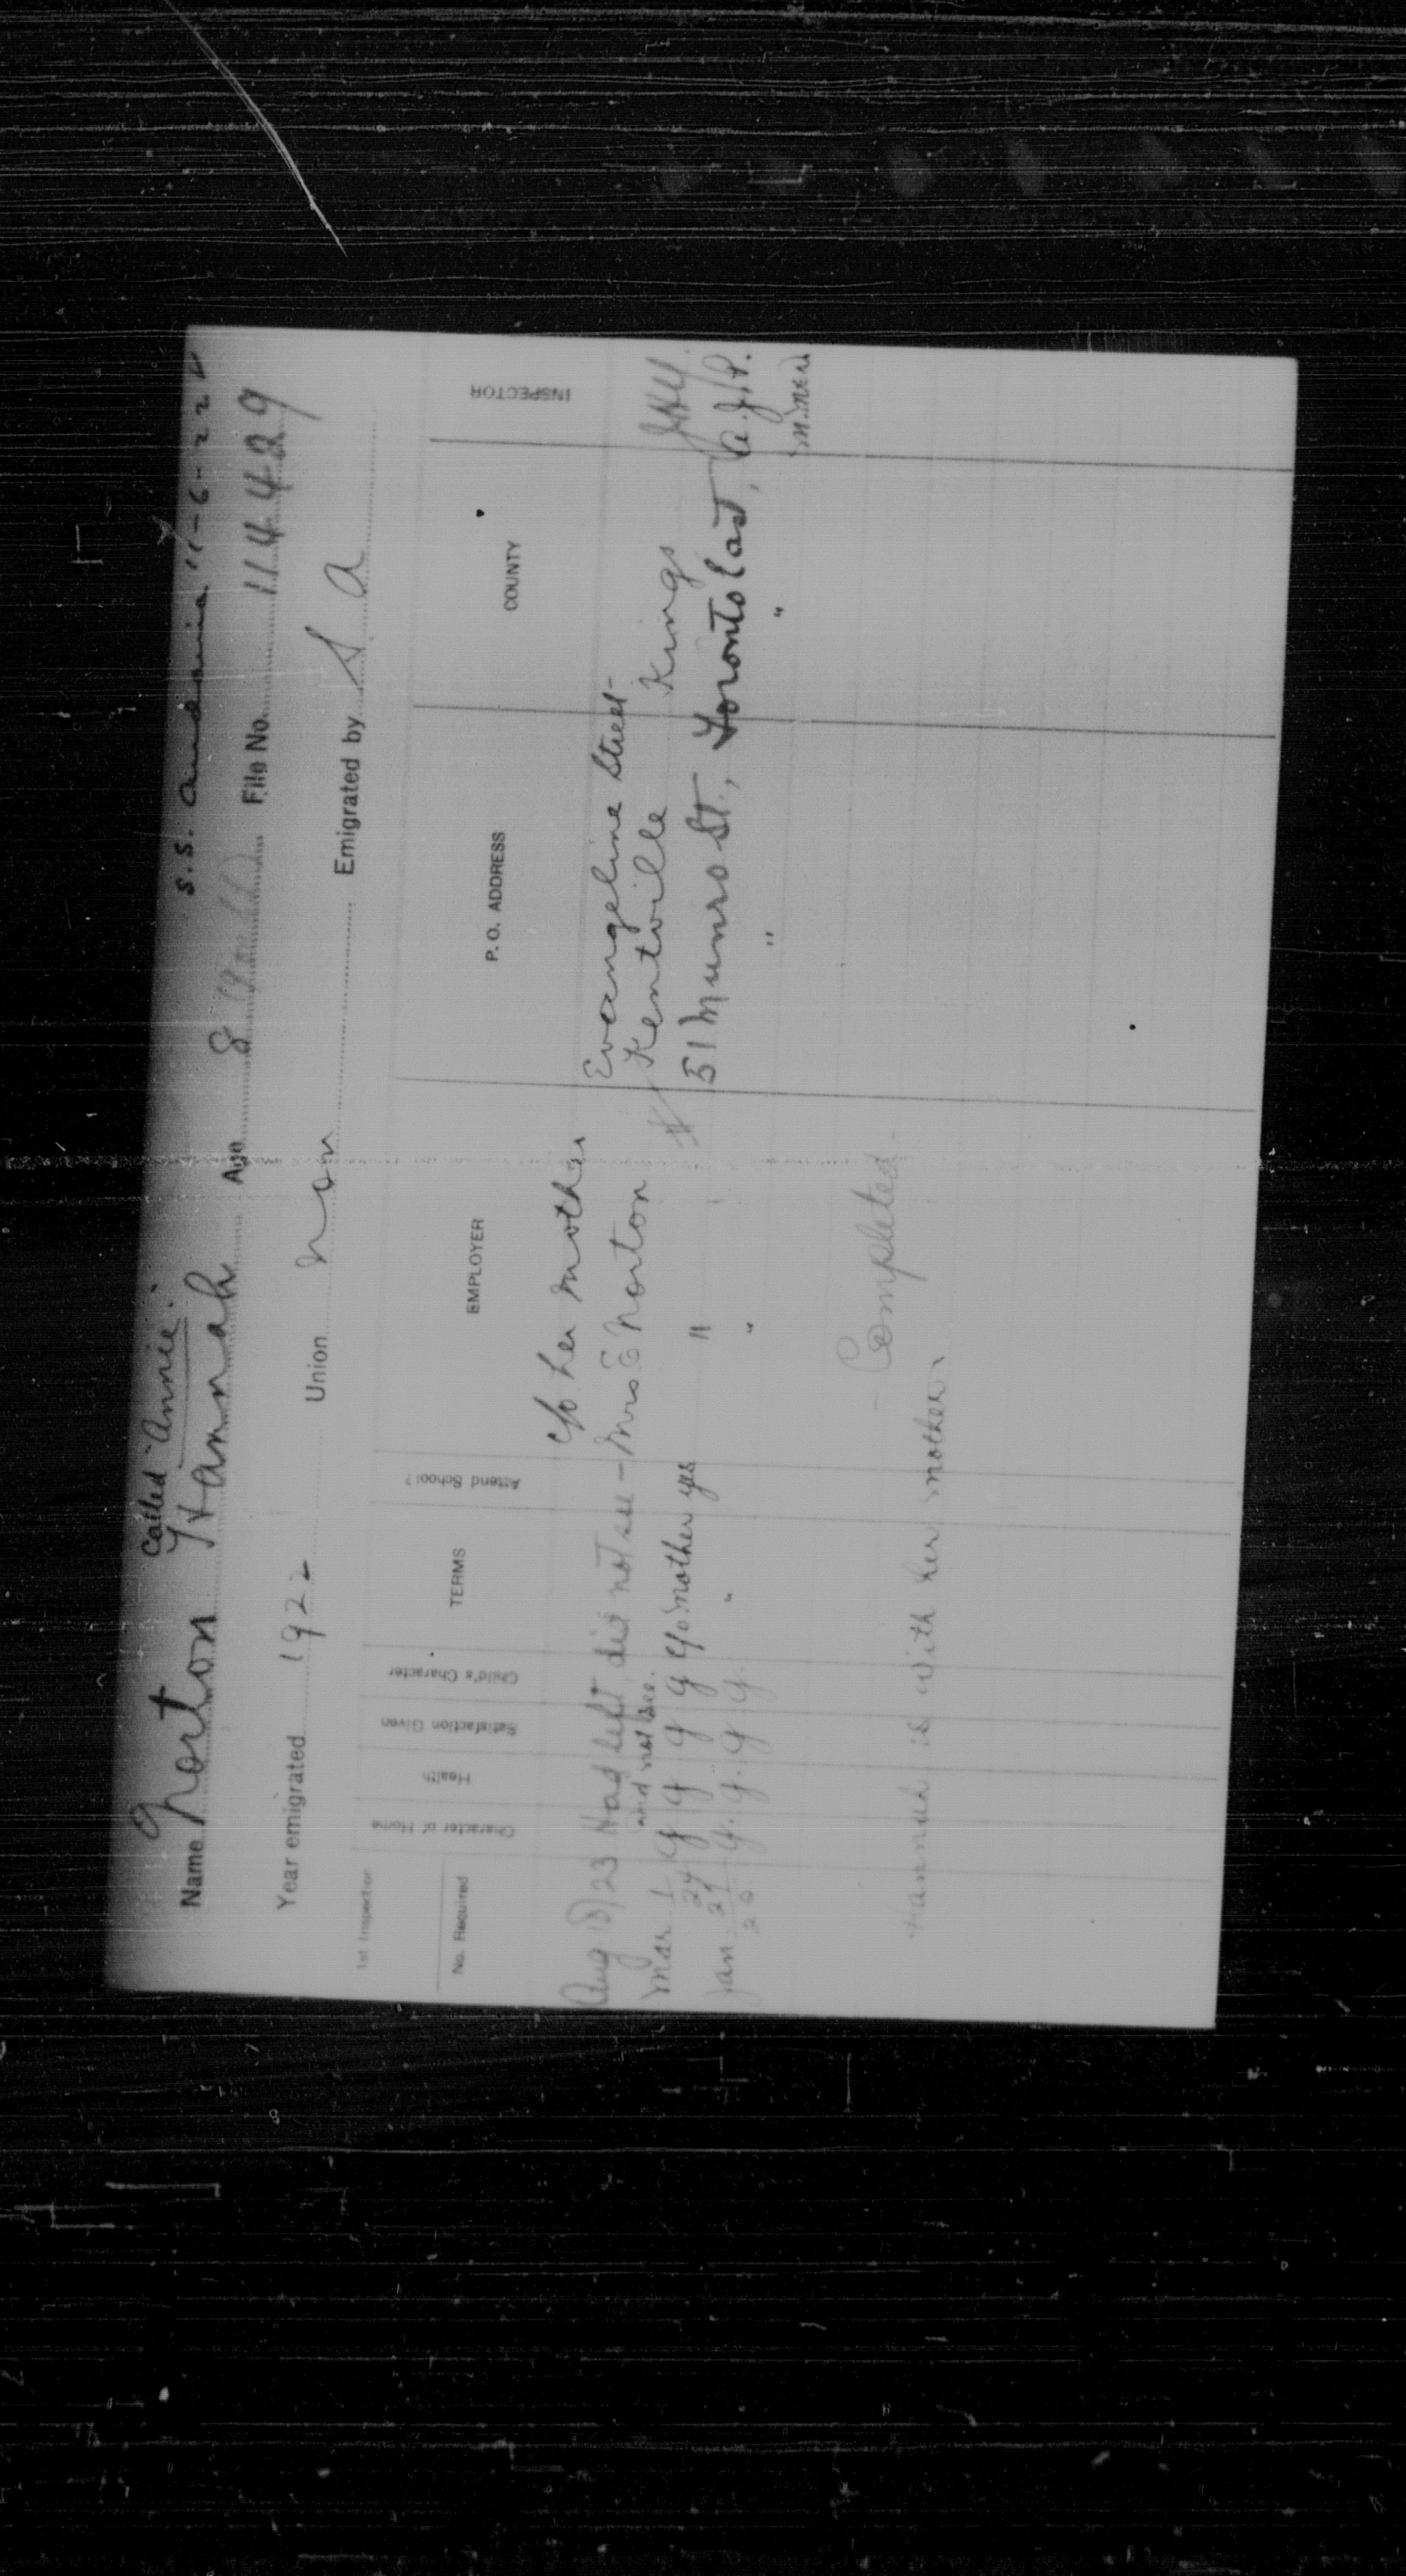 Called "Annie". S.S. Andania 11-6-22
Name Norton Hannah Age 8 File No. 114429
Year emigrated 1922 Union Non Emigrated by S A
1st Inspection
No. Required Character of Home Health Satisfaction Given Child's Character TERMS Attend School? EMPLOYER P. O. ADDRESS COUNTY INSPECTOR
c/o her mother
Evangeline Street
Aug 23 Had left did not see - Mrs. E Norton Kentville Kings
and not see.
Mar 1/24 g g g g c/o mother yes " 51 Munro St., Toronto East,
Jan 21/25 g. g. g g. " " " "
- Completed -
Hannah is with her mother.